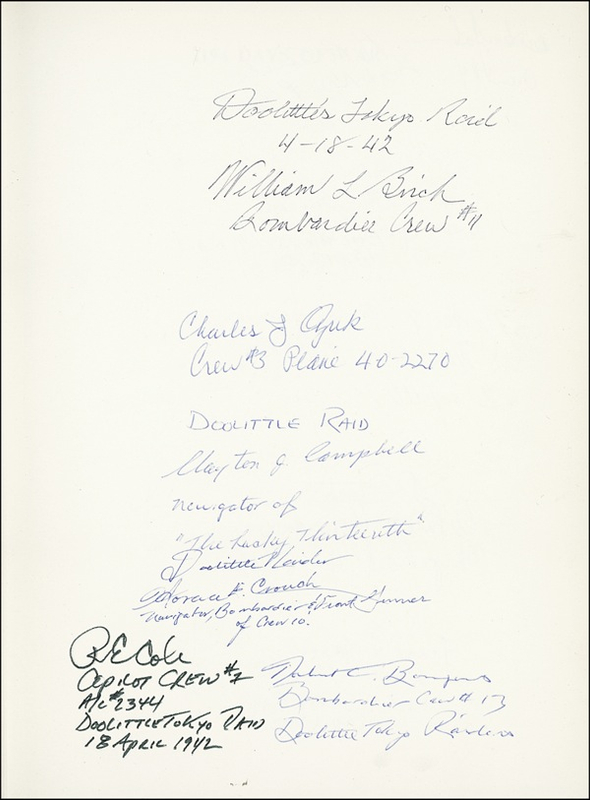 Doolittle's Tokyo Raid
4-18-42
William L. Birch
Bombardier Crew #11
Charles J Ozuk
Crew #3 Plane 40-2270
DOOLITTLE RAID
Clayton J. Campbell
navigator of
"The Lucky Thirteenth"
Doolittle Raider
Horace E. Crouch
Navigator, Bombardier & Front Gunner
of Crew 10.
R E Cole
COPILOT CREW #1
A/C #2344
DOOLITTLE TOKYO RAID
18 APRIL 1942
Robert C. Bourgeois
Bombardier Crew # 13
Doolittle Tokyo Raiders